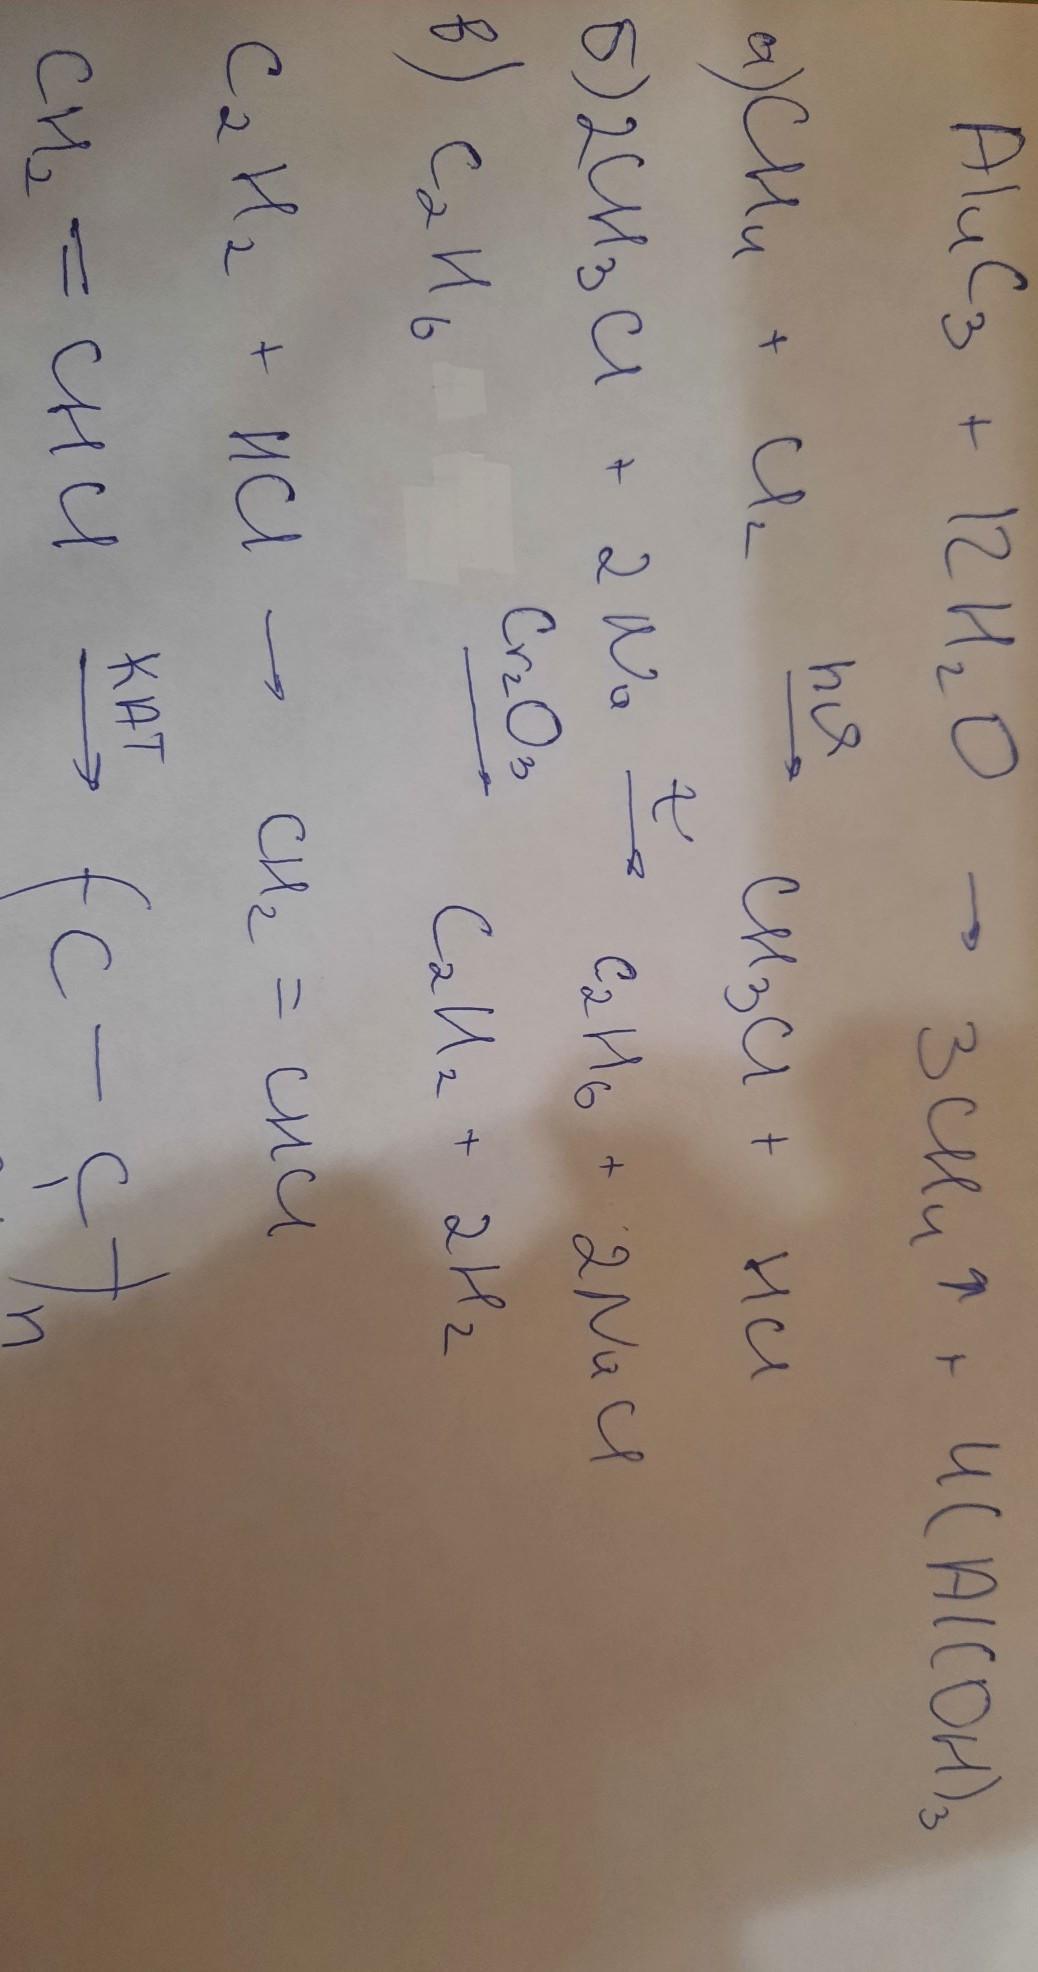 Al4C3 + 12H2O → 3CH4↑ + 4(Al(OH)3
а) CH4 + Cl2 hν→ CH3Cl + HCl
б) 2CH3Cl + 2Na t→ C2H6 + 2NaCl
в) C2H6 Cr2O3→ C2H2 + 2H2
C2H2 + HCl → CH2 = CHCl
CH2 = CHCl КАТ→ (C - C)n